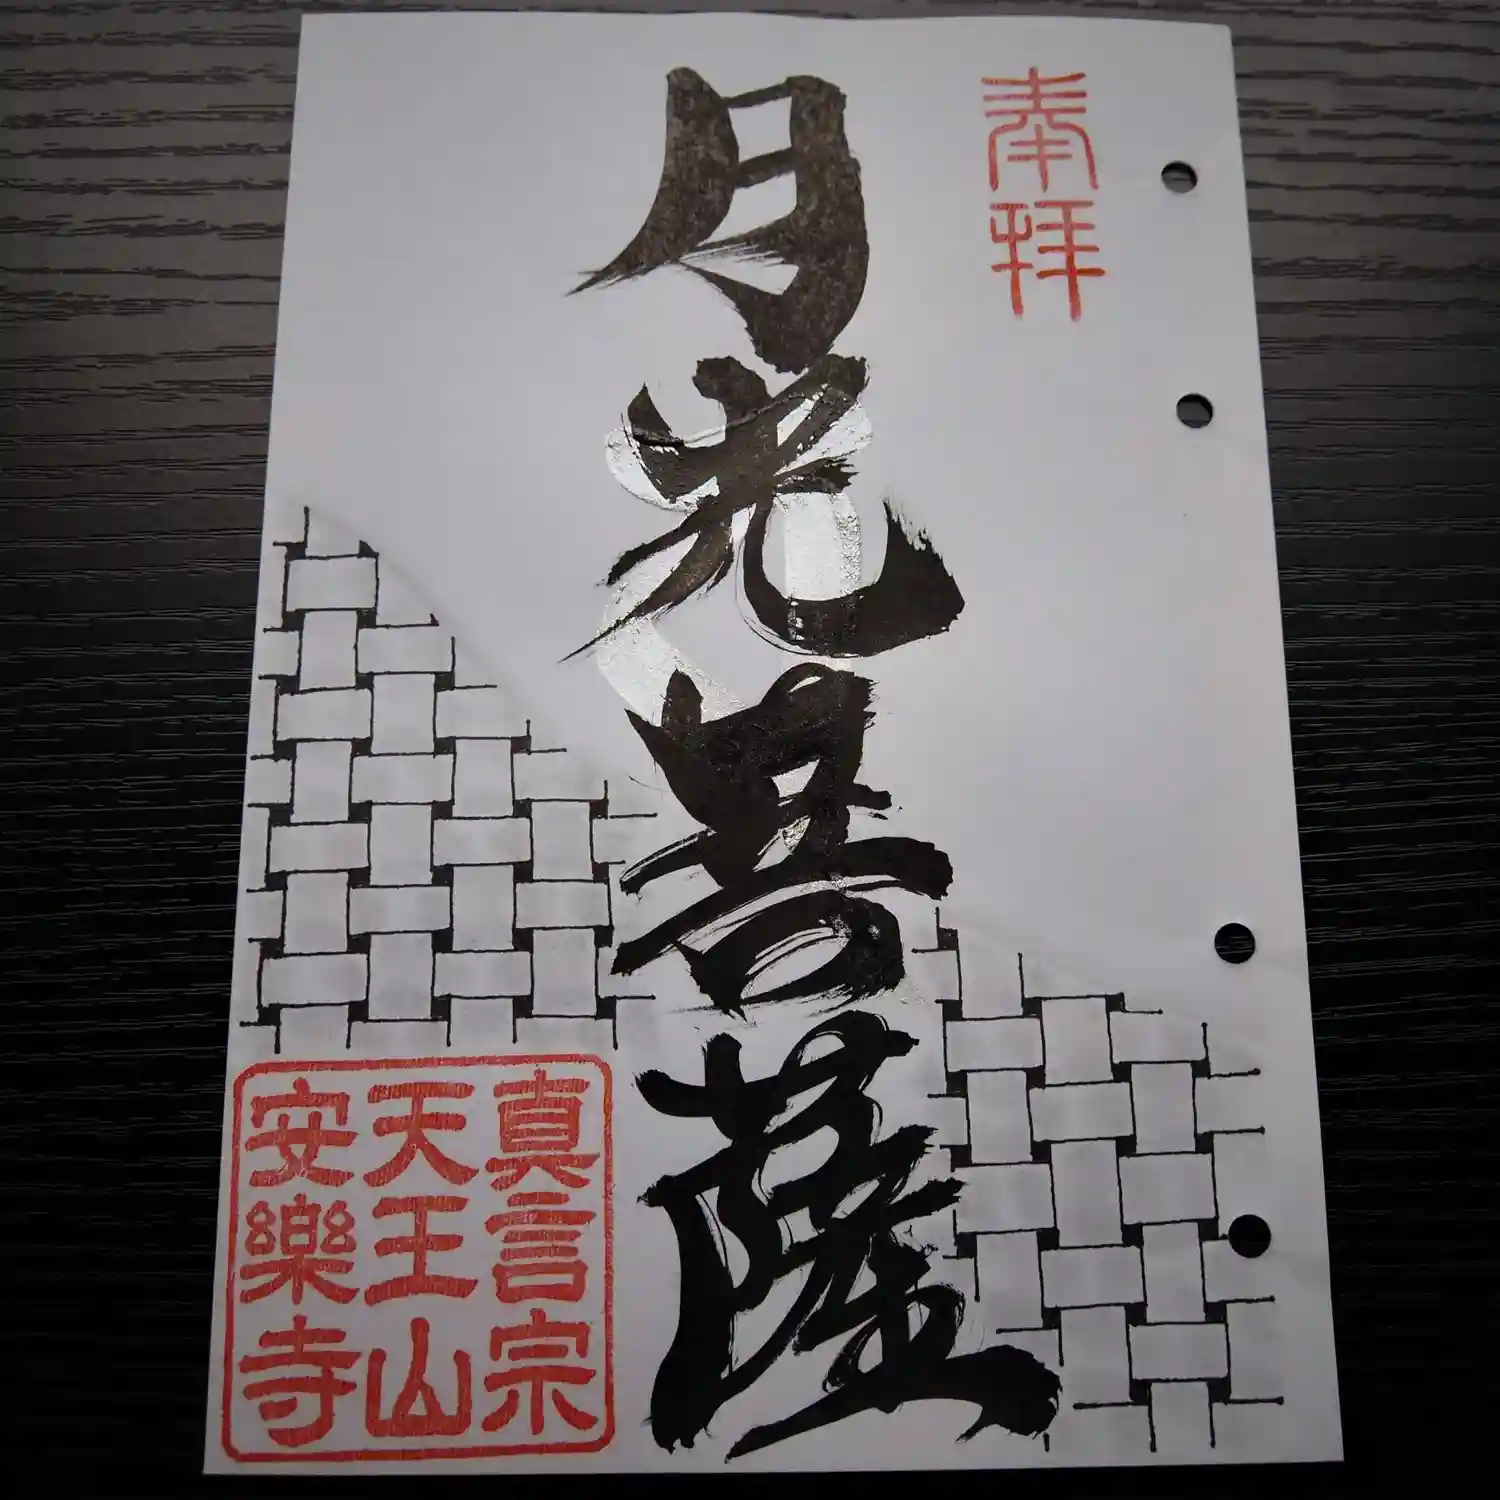 奉拝
月光菩薩
真言宗
天王山
安樂寺